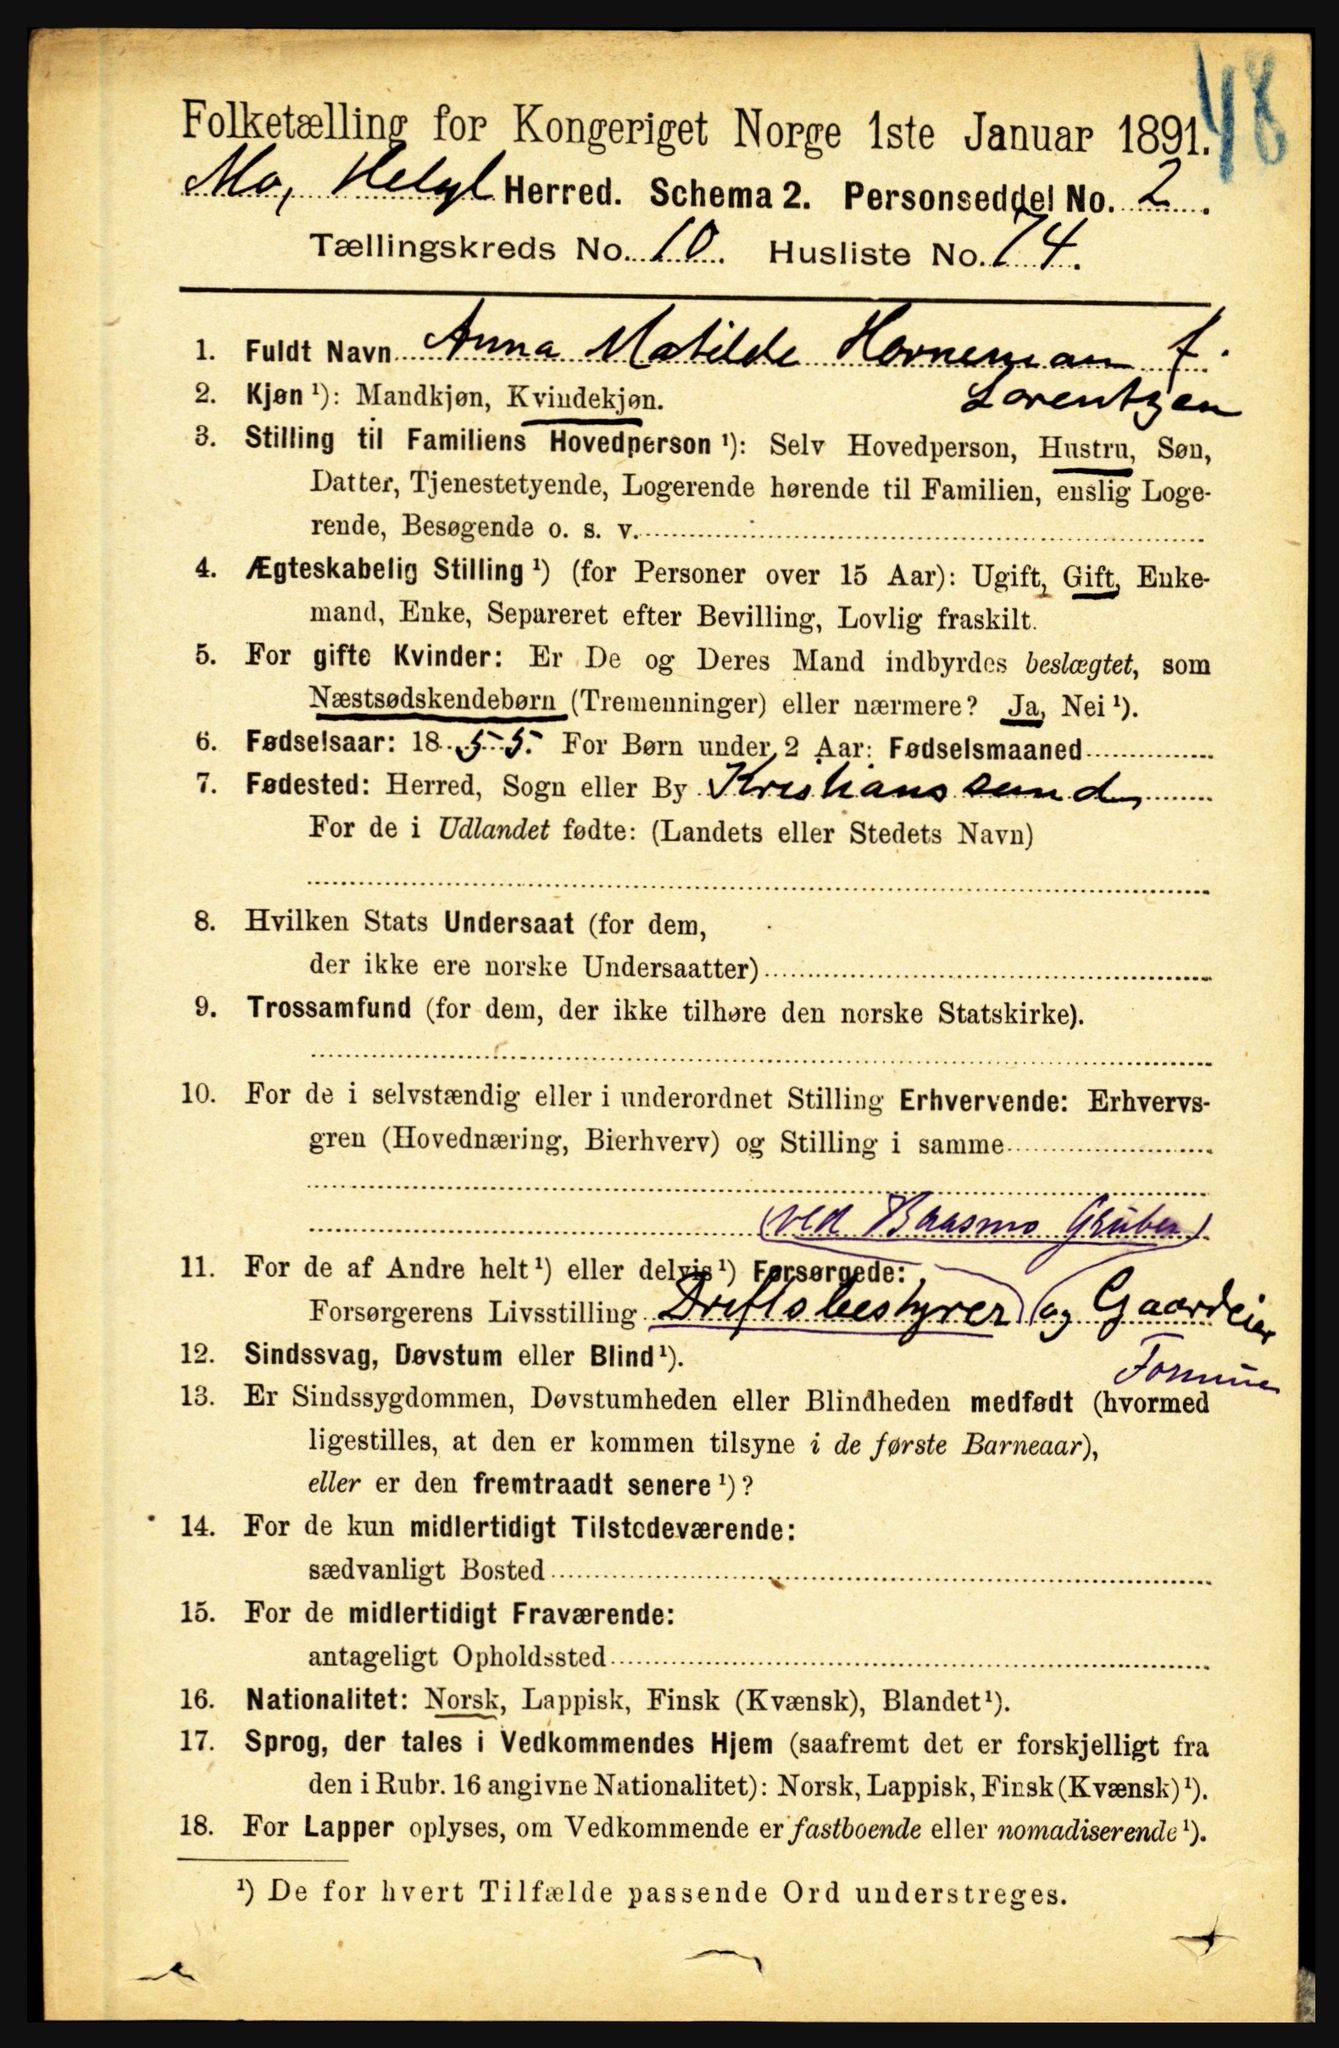 48
Folketælling for Kongeriget Norge 1ste Januar 1891.
Mo, Helgl Herred. Schema 2. Personseddel No. 2.
Tællingskreds No. 10. Husliste No. 74.
1. Fuldt Navn Anna Matilde Horneman f.
Lorentzen
2. Kjøn ¹): Mandkjøn, Kvindekjøn.
3. Stilling til Familiens Hovedperson ¹): Selv Hovedperson, Hustru, Søn,
Datter, Tjenestetyende, Logerende hørende til Familien, enslig Loge-
rende, Besøgende o. s. v.
4. Ægteskabelig Stilling ¹) (for Personer over 15 Aar): Ugift, Gift, Enke-
mand, Enke, Separeret efter Bevilling, Lovlig fraskilt.
5. For gifte Kvinder: Er De og Deres Mand indbyrdes beslægtet, som
Næstsødskendebørn (Tremenninger) eller nærmere? Ja, Nei ¹).
6. Fødselsaar: 1855. For Børn under 2 Aar: Fødselsmaaned
7. Fødested: Herred, Sogn eller By Kristianssund,
For de i Udlandet fødte: (Landets eller Stedets Navn)
8. Hvilken Stats Undersaat (for dem,
der ikke ere norske Undersaatter)
9. Trossamfund (for dem, der ikke tilhøre den norske Statskirke).
10. For de i selvstændig eller i underordnet Stilling Erhvervende: Erhvervs-
gren (Hovednæring, Bierhverv) og Stilling i samme
(ved Baasmo Gruber)
11. For de af Andre helt ¹) eller delvis ¹) Forsørgede:
Forsørgerens Livsstilling Driftsbestyrer og Gaardeier
12. Sindssvag, Døvstum eller Blind ¹).
13. Er Sindssygdommen, Døvstumheden eller Blindheden medfødt (hvormed
ligestilles, at den er kommen tilsyne i de første Barneaar),
eller er den fremtraadt senere ¹)?
14. For de kun midlertidigt Tilstedeværende:
sædvanligt Bosted
15. For de midlertidigt Fraværende:
antageligt Opholdssted
16. Nationalitet: Norsk, Lappisk, Finsk (Kvænsk), Blandet ¹).
17. Sprog, der tales i Vedkommendes Hjem (saafremt det er forskjelligt fra
den i Rubr. 16 angivne Nationalitet): Norsk, Lappisk, Finsk (Kvænsk) ¹).
18. For Lapper oplyses, om Vedkommende er fastboende eller nomadiserende ¹).
¹) De for hvert Tilfælde passende Ord understreges.